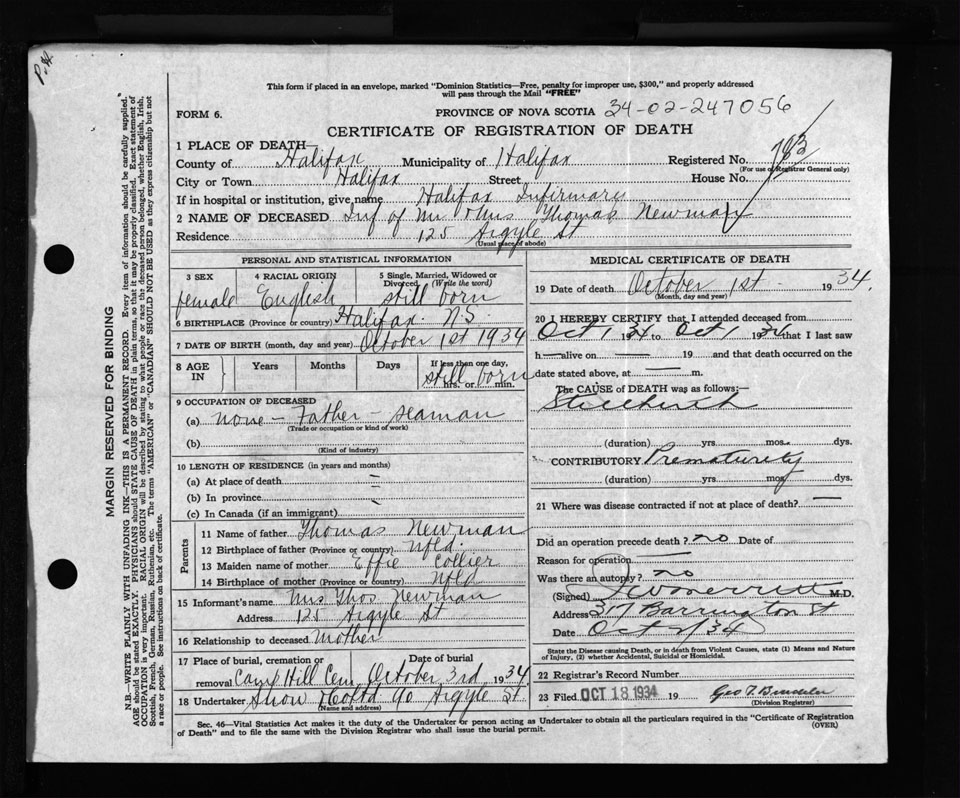 P.H.
This form if placed in an envelope, marked "Dominion Statistics—Free, penalty for improper use, $300," and properly addressed
will pass through the Mail "FREE"
FORM 6.
PROVINCE OF NOVA SCOTIA 34-02-247056
CERTIFICATE OF REGISTRATION OF DEATH
1 PLACE OF DEATH—
County of Halifax Municipality of Halifax Registered No. 783
(For use of Registrar General only)
City or Town Halifax Street House No.
If in hospital or institution, give name Halifax Infirmary
2 NAME OF DECEASED Inf of Mr & Mrs Thomas Newman
Residence 125 Argyle St
(Usual place of abode)
PERSONAL AND STATISTICAL INFORMATION
3 SEX 4 RACIAL ORIGIN 5 Single, Married, Widowed or
Divorced (Write the word)
female English still born
6 BIRTHPLACE (Province or country) Halifax N.S.
7 DATE OF BIRTH (month, day and year) October 1st 1934
8 AGE IN Years Months Days If less than one day,
still born hrs. or min.
9 OCCUPATION OF DECEASED
(a) none - Father - seaman
(Trade or occupation or kind of work)
(b)
(Kind of industry)
10 LENGTH OF RESIDENCE (in years and months)
(a) At place of death —
(b) In province —
(c) In Canada (if an immigrant)
Parents
11 Name of father Thomas Newman
12 Birthplace of father (Province or country) Nfld
13 Maiden name of mother Effie Collier
14 Birthplace of mother (Province or country) Nfld
15 Informant's name Mrs Thos Newman
Address 125 Argyle St
16 Relationship to deceased Mother
17 Place of burial, cremation or Date of burial
removal Camp Hill Cem October 3rd 1934
18 Undertaker Snow & Co Ltd 90 Argyle St.
(Name and address)
MEDICAL CERTIFICATE OF DEATH
19 Date of death October 1st 1934.
(Month, day and year)
20 I HEREBY CERTIFY that I attended deceased from
Oct 1 1934 to Oct 1 1934 that I last saw
h— alive on — 19 and that death occurred on the
date stated above, at — m.
The CAUSE of DEATH was as follows:—
Stillbirth
(duration) yrs. mos. dys.
CONTRIBUTORY Prematurity
(duration) yrs. mos. dys.
21 Where was disease contracted if not at place of death? —
Did an operation precede death? no Date of
Reason for operation
Was there an autopsy? no
(Signed) M.D.
Address 317 Barrington St
Date Oct 2/34
State the Disease causing Death, or in death from Violent Causes, state (1) Means and Nature
of Injury, (2) whether Accidental, Suicidal or Homicidal.
22 Registrar's Record Number
23 Filed OCT 18 1934 19
(Division Registrar)
Sec. 46—Vital Statistics Act makes it the duty of the Undertaker or person acting as Undertaker to obtain all the particulars required in the "Certificate of Registration
of Death" and to file the same with the Division Registrar who shall issue the burial permit.
(OVER)
MARGIN RESERVED FOR BINDING
N.B.—WRITE PLAINLY WITH UNFADING INK—THIS IS A PERMANENT RECORD. Every item of information should be carefully supplied.
AGE should be stated EXACTLY. PHYSICIANS should STATE CAUSE OF DEATH in plain terms, so that it may be properly classified. Exact statement of
OCCUPATION is very important. RACIAL ORIGIN will be described by stating to what people or race the deceased person belonged, whether English, Irish,
Scottish, French, German, Russian, Ruthenian, etc. The terms "AMERICAN" or "CANADIAN" SHOULD NOT BE USED as they express citizenship but not
a race or people. See instructions on back of certificate.